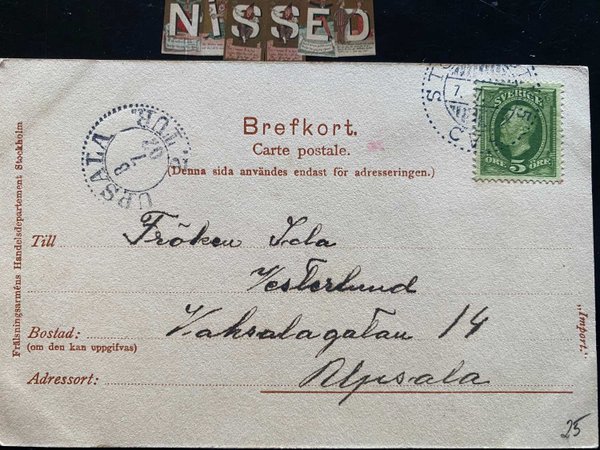 NISSED
Brefkort.
Carte postale.
(Denna sida användes endast för adresseringen.)
UPSALA
2. TUR
SVERIGE
ÖRE 5 ÖRE
Till Fröken Ida
Vesterlund
Bostad: Vaksalagatan 14
(om den kan uppgifvas)
Adressort: Upsala
Frälsningsarméns Handelsdepartement Stockholm
„Import."
25